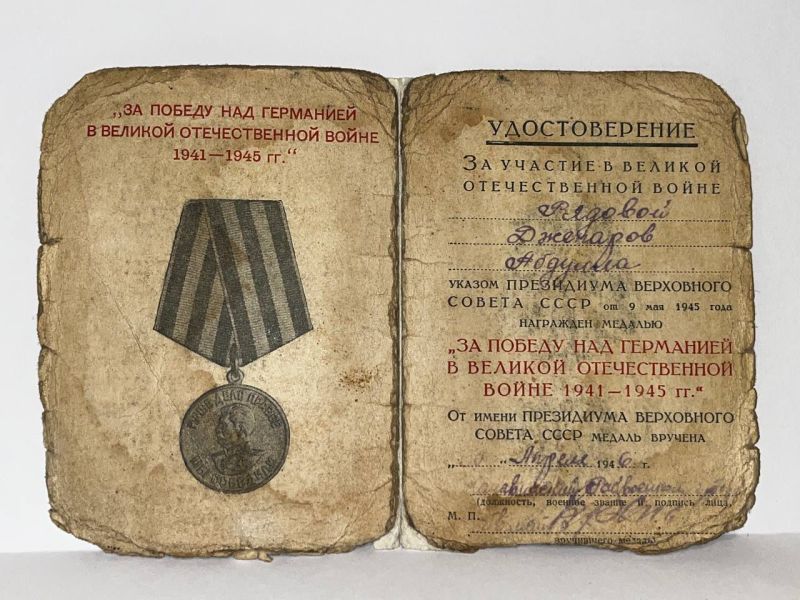 „ЗА ПОБЕДУ НАД ГЕРМАНИЕЙ
В ВЕЛИКОЙ ОТЕЧЕСТВЕННОЙ ВОЙНЕ
1941—1945 гг.“
НАШЕ ДЕЛО ПРАВОЕ
МЫ ПОБЕДИЛИ
УДОСТОВЕРЕНИЕ
ЗА УЧАСТИЕ В ВЕЛИКОЙ
ОТЕЧЕСТВЕННОЙ ВОЙНЕ
Рядовой
Джепаров
Абдулла
УКАЗОМ ПРЕЗИДИУМА ВЕРХОВНОГО
СОВЕТА СССР от 9 мая 1945 года
НАГРАЖДЕН МЕДАЛЬЮ
„ЗА ПОБЕДУ НАД ГЕРМАНИЕЙ
В ВЕЛИКОЙ ОТЕЧЕСТВЕННОЙ
ВОЙНЕ 1941—1945 гг.“
От имени ПРЕЗИДИУМА ВЕРХОВНОГО
СОВЕТА СССР МЕДАЛЬ ВРУЧЕНА
„ “ Апреля 1946 г.
(должность, военное звание и подпись лица,
М. П.
вручившего медаль)